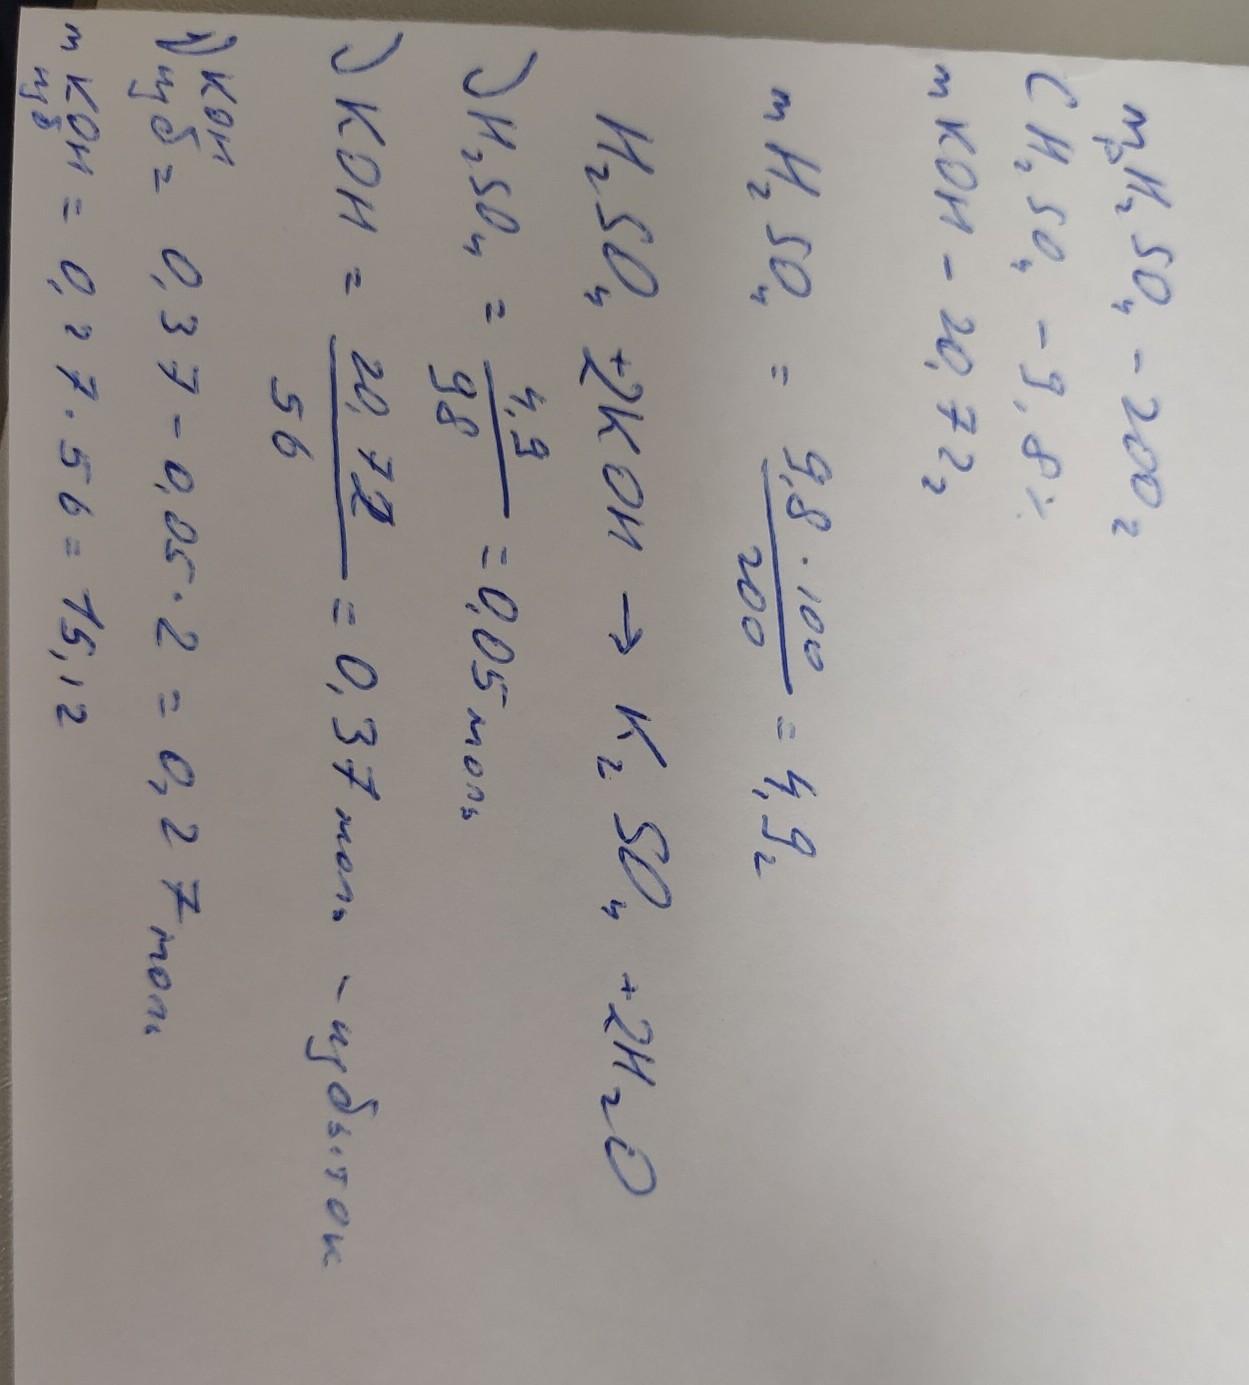 mр H₂SO₄ - 200г
C H₂SO₄ - 9,8%
m KOH - 20,72г
m H₂SO₄ = 9,8 · 100 / 200 = 4,9г
H₂SO₄ + 2KOH → K₂SO₄ + 2H₂O
) H₂SO₄ = 4,9 / 98 = 0,05 моль
) KOH = 20,72 / 56 = 0,37 моль - избыток
) KOH изб = 0,37 - 0,05 · 2 = 0,27 моль
m KOH изб = 0,27 · 56 = 15,12